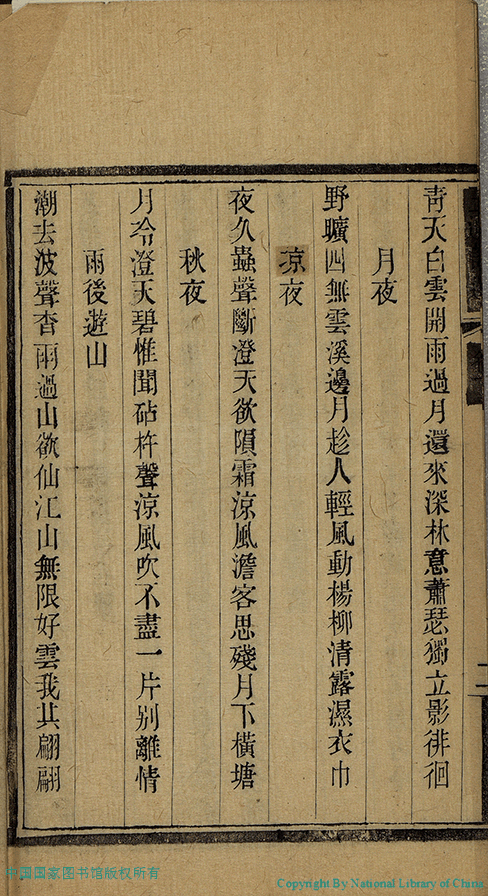 青天白雲開雨過月還來深林意蕭瑟獨立影徘徊
月夜
野曠四無雲溪邊月趁人輕風動楊柳清露濕衣巾
涼夜
夜久蟲聲斷澄天欲隕霜涼風澹客思殘月下橫塘
秋夜
月令澄天碧惟聞砧杵聲涼風吹不盡一片别離情
雨後遊山
潮去波聲杳雨過山欲仙江山無限好雲我其翩翩
中国国家图书馆版权所有
Copyright By National Library of China